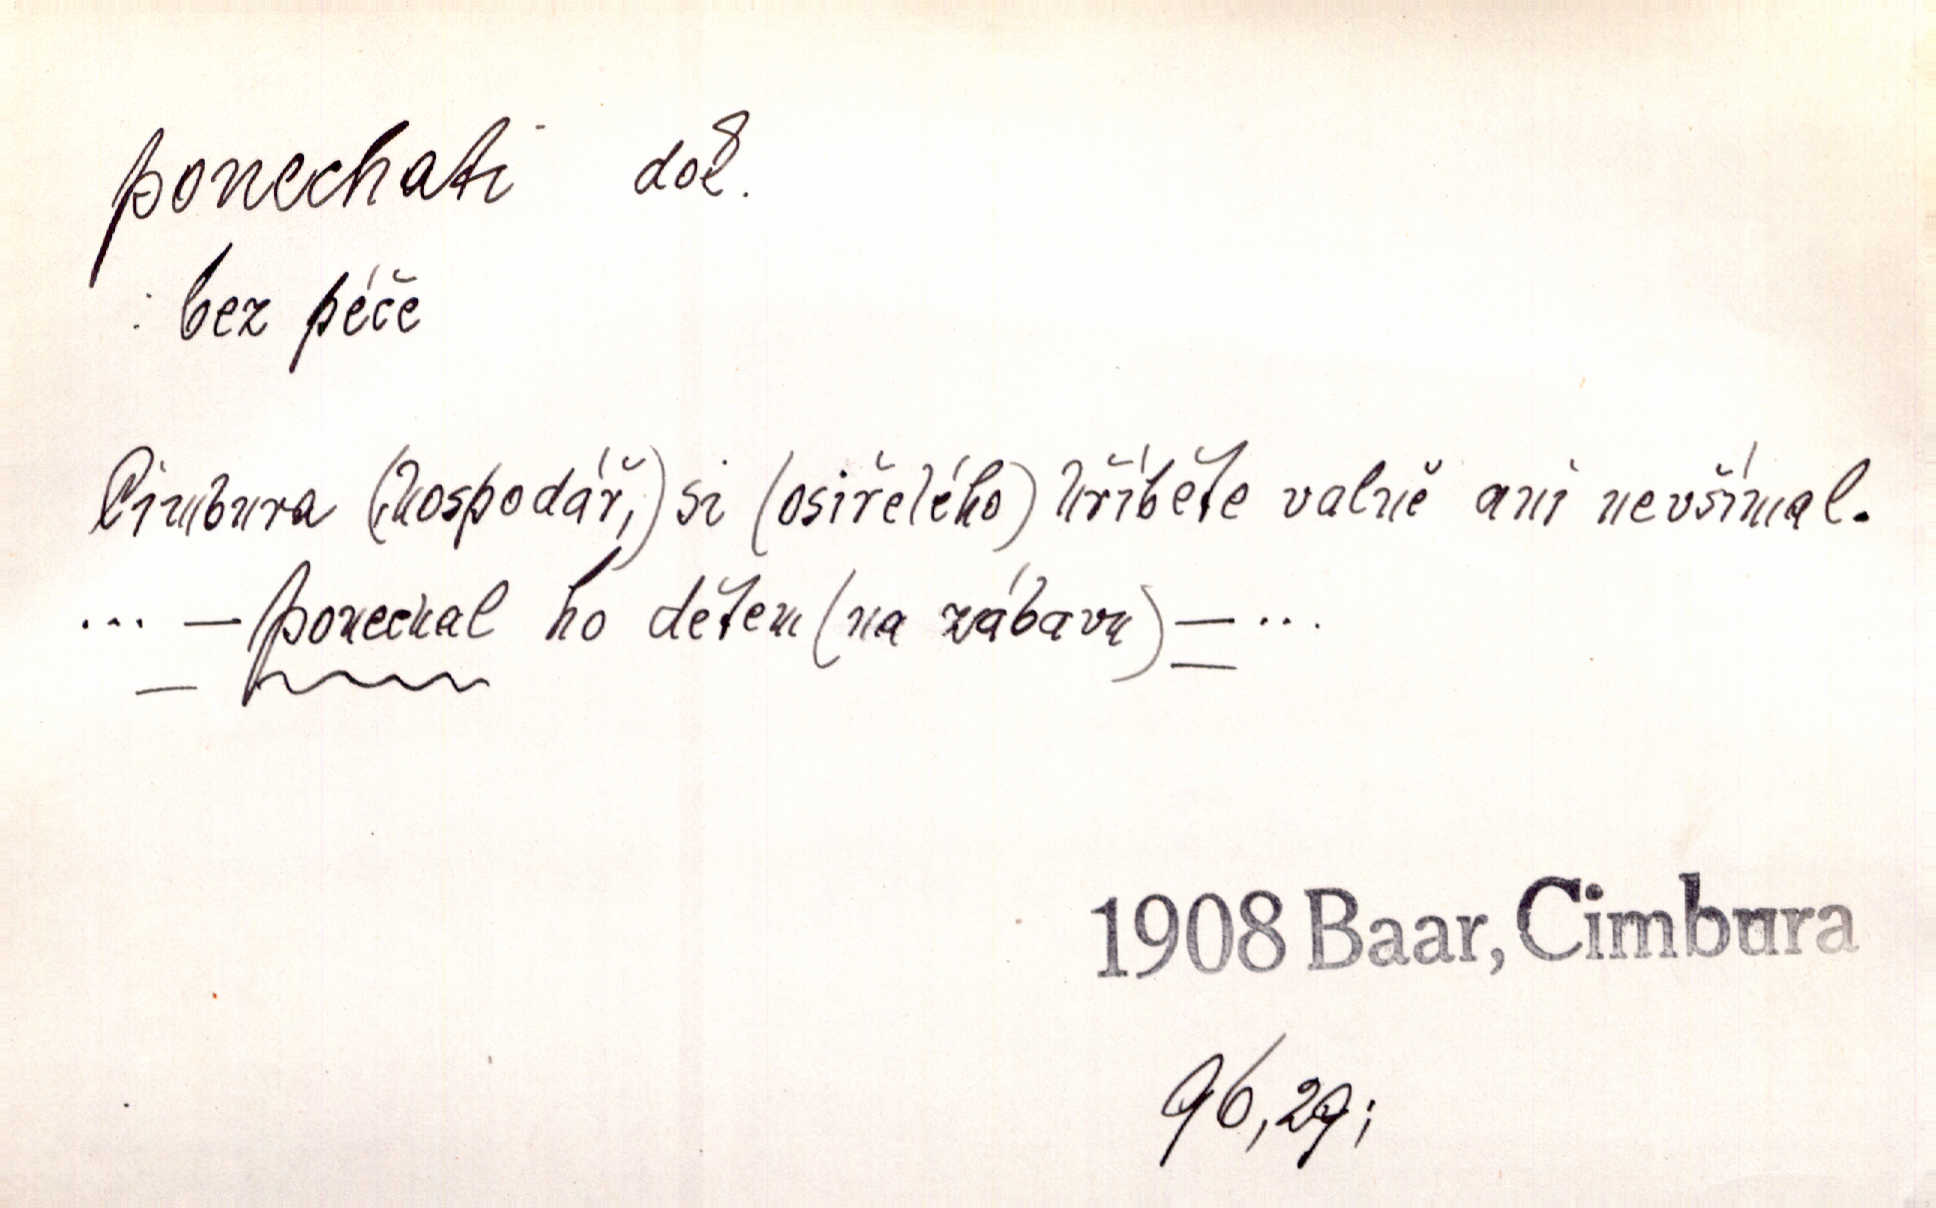 ponechati dok.
: bez péče
Cimbura (,hospodář,) si (osiřelého) hříběte valně ani nevšímal.
... — ponechal ho dětem (na zábavu) — ...
1908 Baar, Cimbura
96,29;